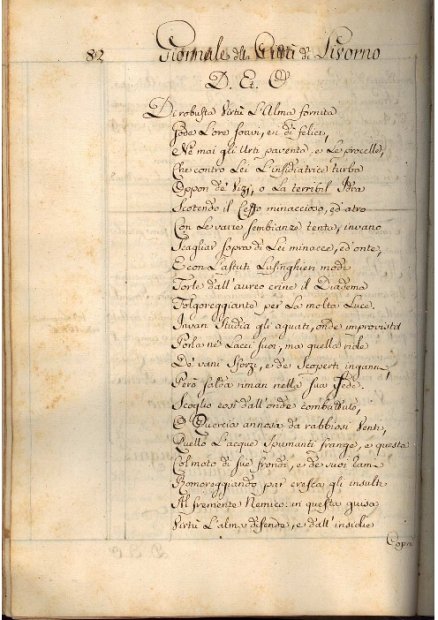 82 Giornale della Città di Livorno
D. E. O
Di robusta Virtù L'Alma fornita
Gode L'ore soavi, e i dì felici,
Nè mai gli Urti paventa, e Le procelle,
Che contro Lei L'insidiatrice turba
Oppon de Vizj, o La terribil Idra
Scotendo il Ceffo minaccioso, ed atro
Con Le varie sembianze tenta, invano
Scagliar sopra di Lei minacce, ed onte,
E con L'astuti Lusinghieri modi
Torle dall'aureo crine il Diadema
Folgoreggiante per La molta Luce.
Invan Studia gli aguati, onde improvista
Porla ne Lacci suoi, ma quella ride
De vani Sforzi, e de Scoperti inganni,
Però salda riman nella sua Sede.
Scoglio così dall'onde combattuto,
O Quercia annosa da rabbiosi Venti,
Quello L'acque Spumanti frange, e questa
Col moto di sue frondi, e de suoi rami
Bonoreggiando par cresca gli insulti
Al fremente Nemico: in questa guisa
Virtù L'alma difende, e dall'insidie
Copa